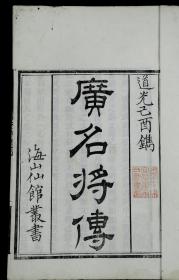 道光己酉鐫
廣名將傳
海山仙館叢書